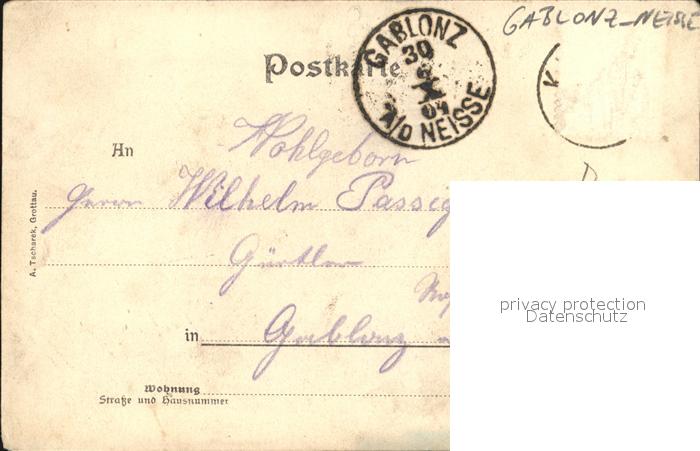 GABLONZ-NEISSE
Postkarte
GABLONZ
30
X
04
A/D NEISSE
K
An
Wohlgeborn
Herrn Wilhelm Passig
Gürtler
in Gablonz
A. Tscharek, Grottau.
Wohnung
Straße und Hausnummer
privacy protection
Datenschutz